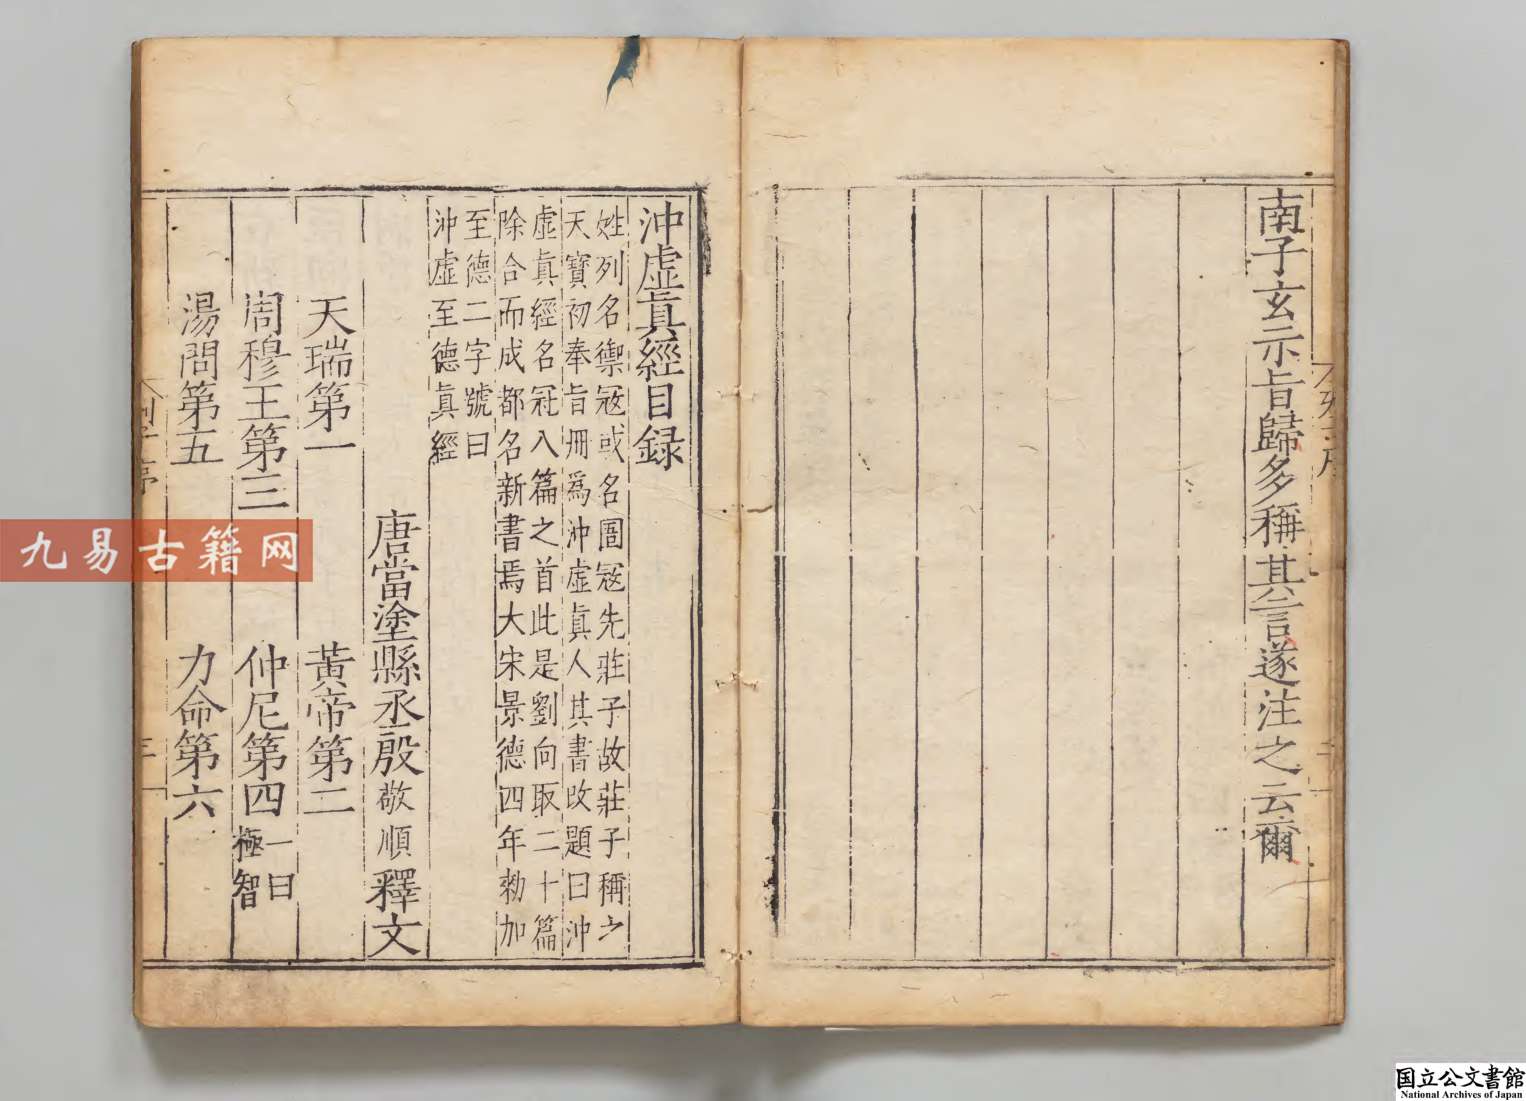 南子玄示旨歸多稱其言遂注之云爾
沖虛眞經目録
姓列名禦冦或名圄冦先莊子故莊子稱之
天寶初奉旨冊爲沖虛眞人其書改題曰沖
虛眞經名冠八篇之首此是劉向取二十篇
除合而成都名新書焉大宋景德四年勑加
至德二字號曰
沖虛至德眞經
唐當塗縣丞殷敬順釋文
天瑞第一 黃帝第二
周穆王第三 仲尼第四 一曰極智
湯問第五 力命第六
九易古籍网
国立公文書館
National Archives of Japan